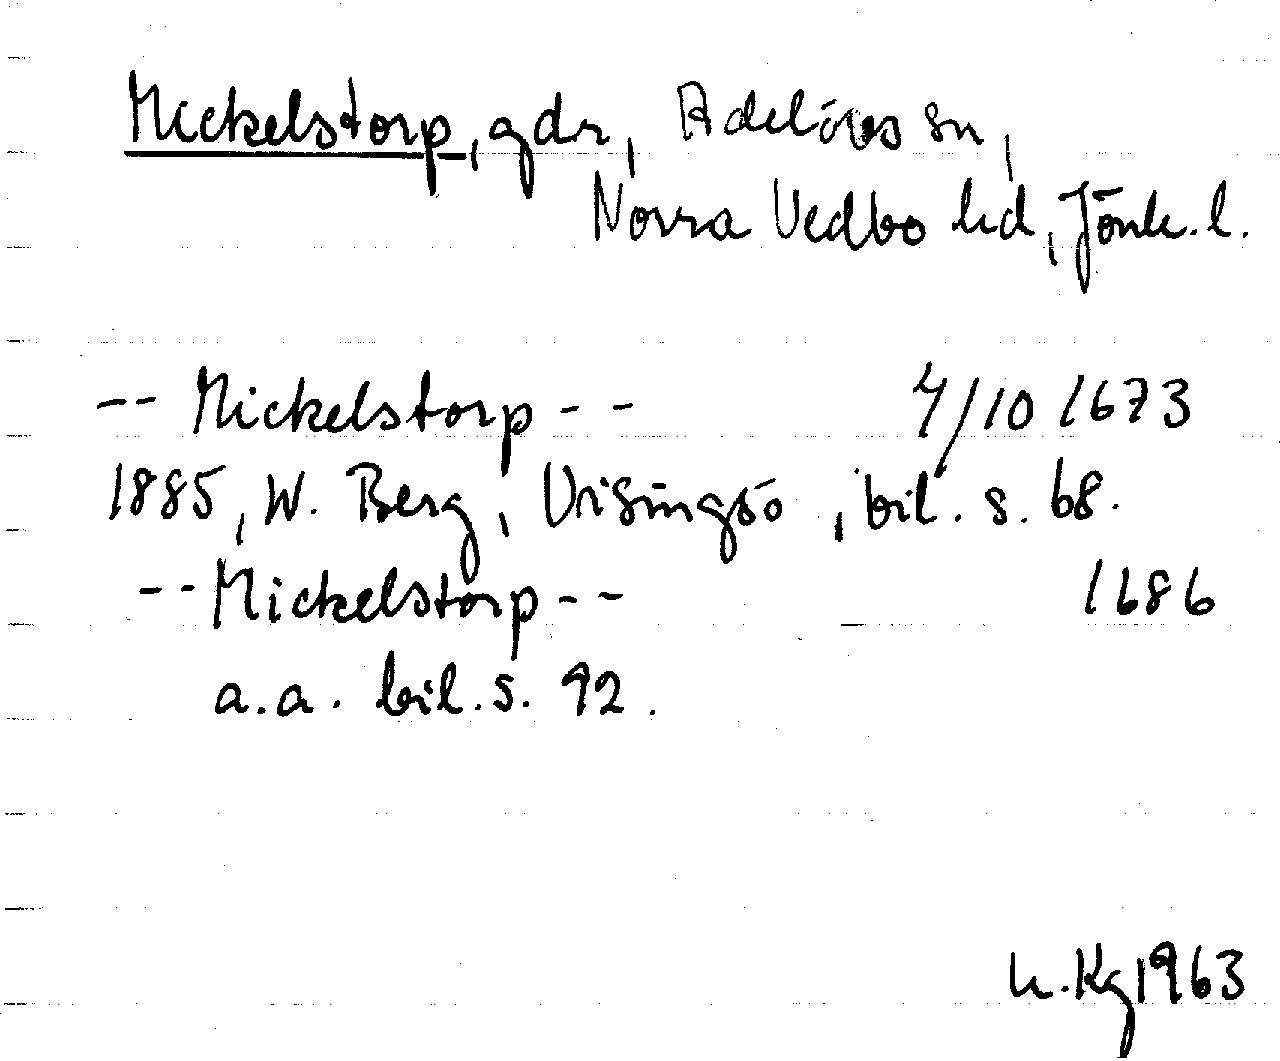 Mickelstorp, gdr, Adelövs sn,
Norra Vedbo hd, Jönk. l.
-- Mickelstorp -- 4/10 1673
1885, W. Berg, Visingsö, bil. s. 68.
-- Mickelstorp -- 1686
a.a. bil. s. 92.
h. Kg 1963